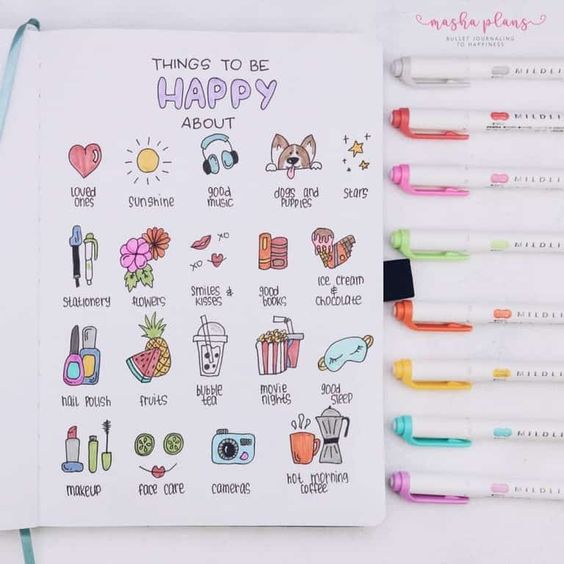 masha plans
BULLET JOURNALING
TO HAPPINESS
THINGS TO BE
HAPPY
ABOUT
loved
ones
sunshine
good
music
dogs and
puppies
stars
stationery
flowers
XO
XO
smiles &
kisses
good
books
ice cream
&
chocolate
nail polish
fruits
bubble
tea
movie
nights
good
sleep
makeup
face care
cameras
hot morning
coffee
MILDLI
MILDLI
MILDLI
MILDLI
MILDLI
MILDLI
MILDLI
MILDLI